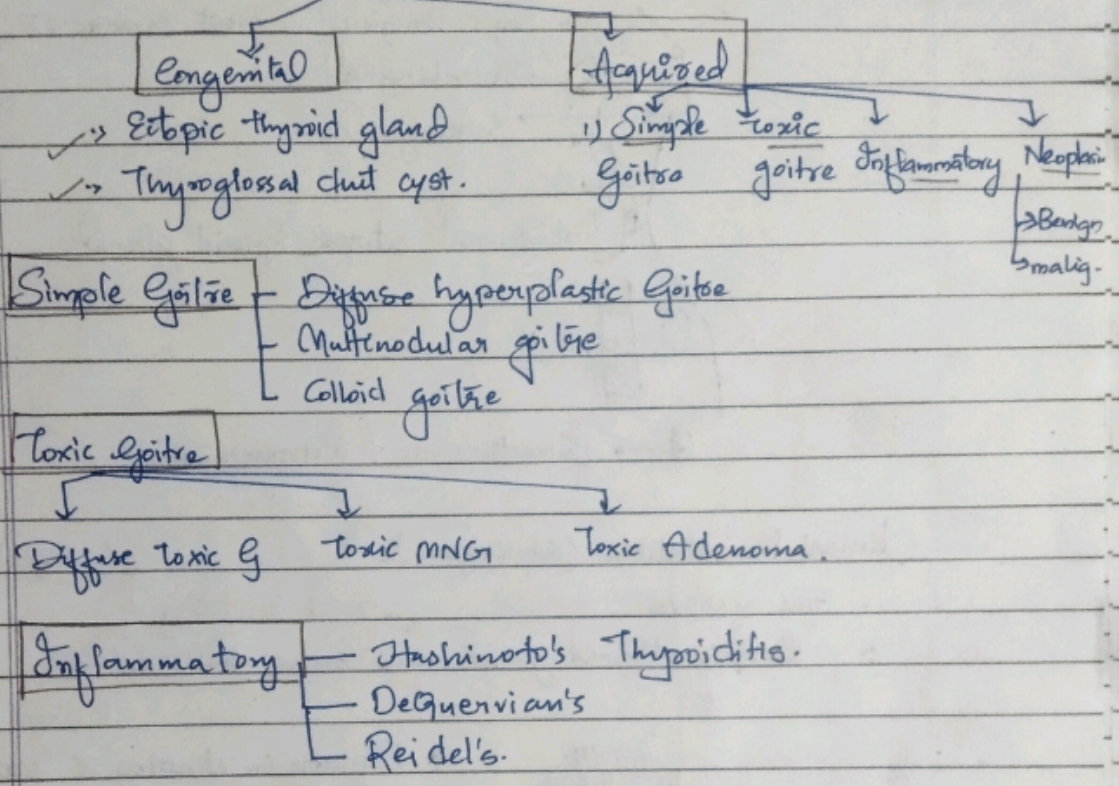 Congenital Acquired
Ectopic thyroid gland 1) Simple Toxic
Goitre goitre Inflammatory Neoplasi
Thyroglossal duct cyst.
Benign
malig.
Simple Goitre Diffuse hyperplastic Goitre
Multinodular goitre
Colloid goitre
Toxic Goitre
Diffuse Toxic G Toxic MNG Toxic Adenoma.
Inflammatory Hashinoto's Thyroiditis.
DeQuervian's
Reidel's.